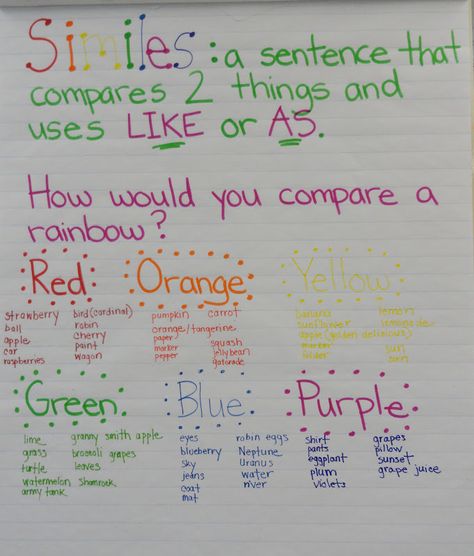 Similes: a sentence that
compares 2 things and
uses LIKE or AS.
How would you compare a
rainbow?
Red
strawberry
ball
apple
car
raspberries
bird (cardinal)
robin
cherry
paint
wagon
Orange
pumpkin
orange/tangerine
paper
marker
pepper
carrot
squash
jellybean
gatorade
Yellow
banana
sunflower
apple (golden delicious)
marker
folder
lemon
lemonade
sun
corn
Green
lime
grass
turtle
watermelon
army tank
granny smith apple
broccoli grapes
leaves
shamrock
Blue
eyes
blueberry
sky
jeans
coat
mat
robin eggs
Neptune
Uranus
water
river
Purple
shirt
pants
eggplant
plum
violets
grapes
pillow
sunset
grape juice